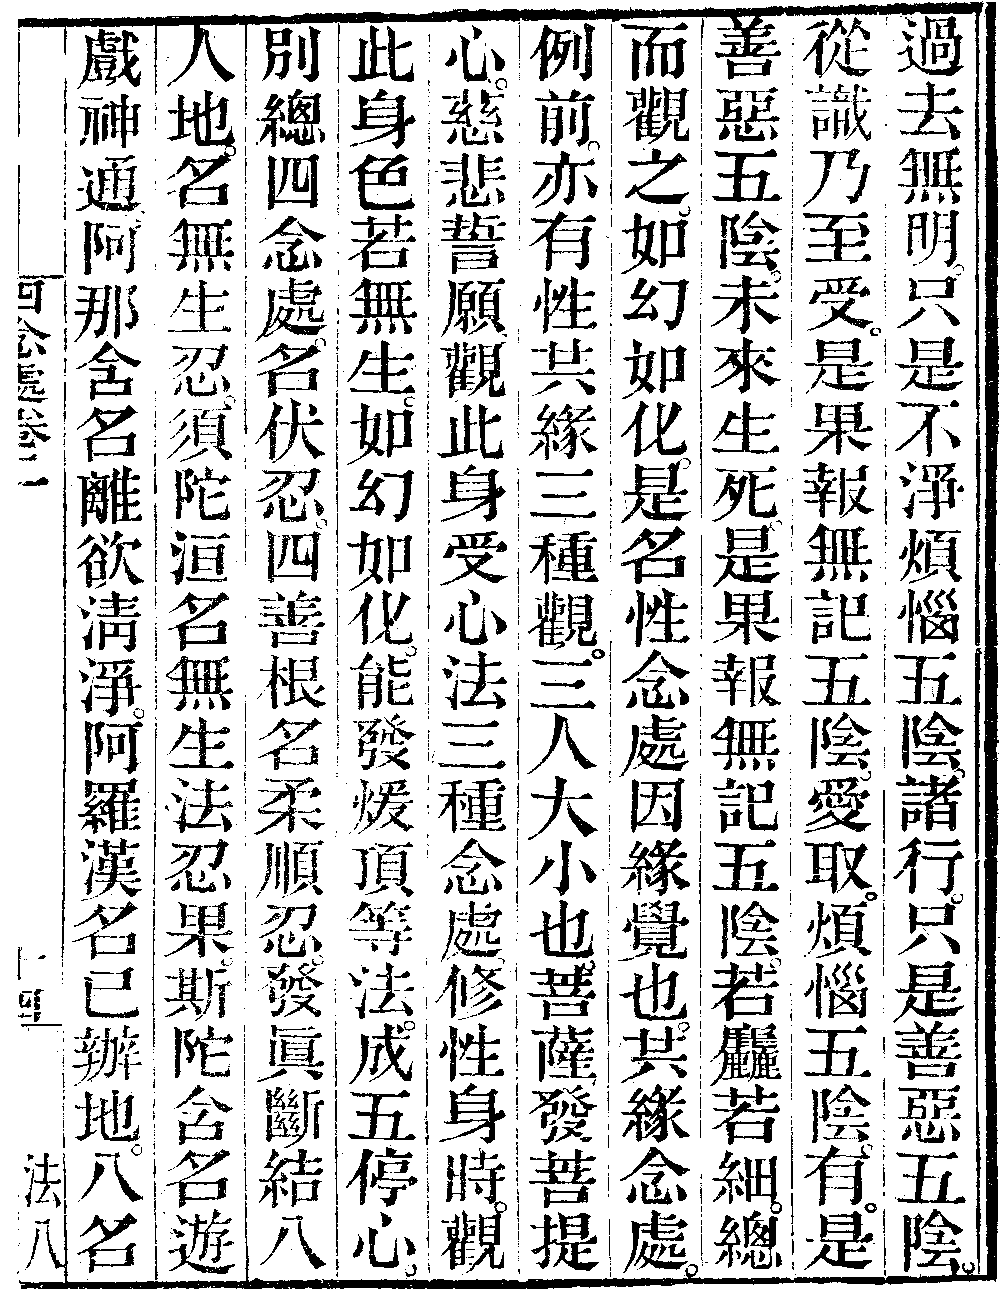 過去無明。只是不淨煩惱五陰。諸行。只是善惡五陰。
從識乃至受。是果報無記五陰。愛取。煩惱五陰。有。是
善惡五陰。未來生死。是果報無記五陰。若麤若細。總
而觀之。如幻如化。是名性念處。因緣覺也。共緣念處。
例前。亦有性共緣三種觀。三人大小也。菩薩發菩提
心。慈悲誓願。觀此身受心法三種念處。修性身時。觀
此身色若無生。如幻如化。能發煖頂等法。成五停心。
別總四念處。名伏忍。四善根名柔順忍。發眞斷結八
人地。名無生忍。須陀洹名無生法忍果。斯陀含名遊
戲神通。阿那含名離欲淸淨。阿羅漢名已辦地。八名
四念處卷二
十四
法八